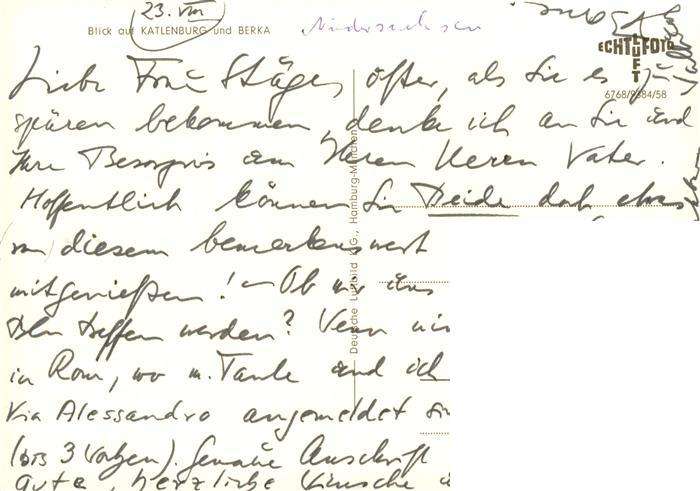 23. VIII
Blick auf KATLENBURG und BERKA
Niedersachsen
ECHT FOTO
LUFT
6768/9384/58
Liebe Frau Stäges, öfter, als Sie es zu
spüren bekommen, denke ich an Sie und
Ihre Besorgnis um Ihren Herrn Vater.
Hoffentlich können Sie Beide doch etwas
von diesem bemerkenswert
mitgenießen! – Ob wir uns
treffen werden? Wenn
in Rom, wo m. Tante und ich
Via Alessandro angemeldet
(bis 3 Wochen). Genaue Anschrift
Gute, herzliche Wünsche
Deutsche Luftbild K.G., Hamburg-München